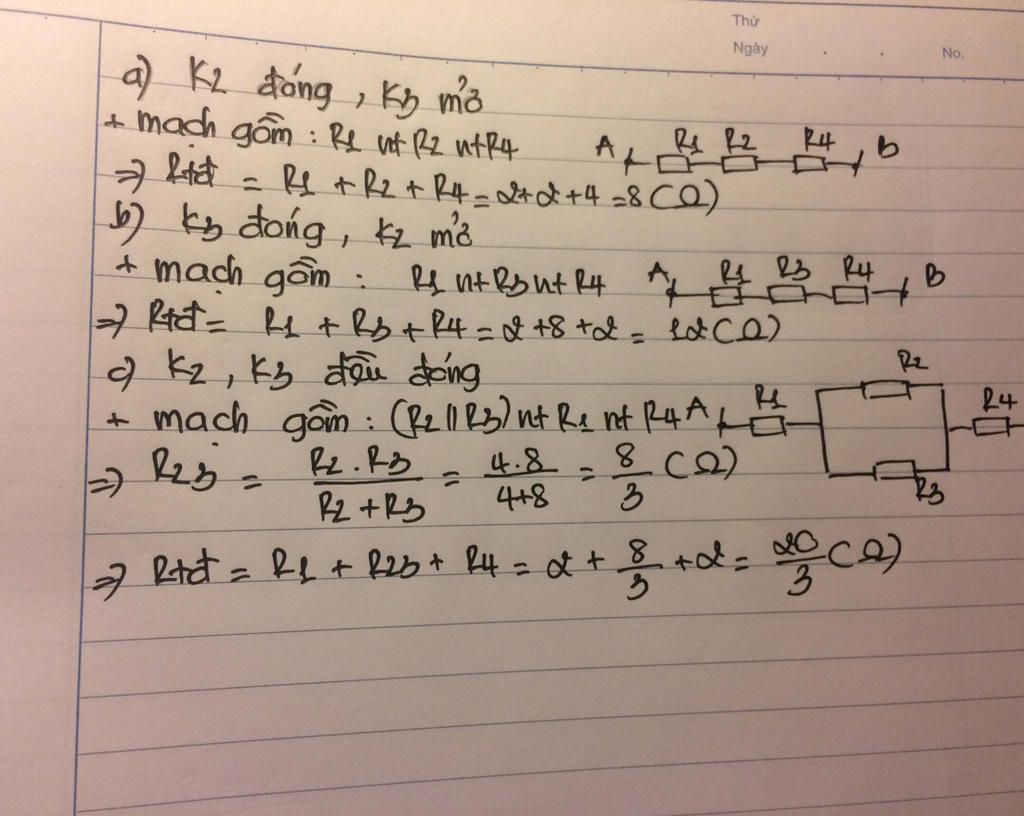 Thứ
Ngày . . No.
a) K2 đóng, K3 mở
+ mạch gồm : R1 nt R2 nt R4 A R1 R2 R4 B
=> Rtđ = R1 + R2 + R4 = 2+2+4 = 8 (Ω)
b) K3 đóng, K2 mở
+ mạch gồm : R1 nt R3 nt R4 A R1 R3 R4 B
=> Rtđ = R1 + R3 + R4 = 2+8+2 = 12 (Ω)
c) K2, K3 đều đóng
+ mạch gồm : (R2 // R3) nt R1 nt R4 A R1 R2 R3 R4
=> R23 = R2.R3/(R2+R3) = 4.8/(4+8) = 8/3 (Ω)
=> Rtđ = R1 + R23 + R4 = 2 + 8/3 + 2 = 20/3 (Ω)